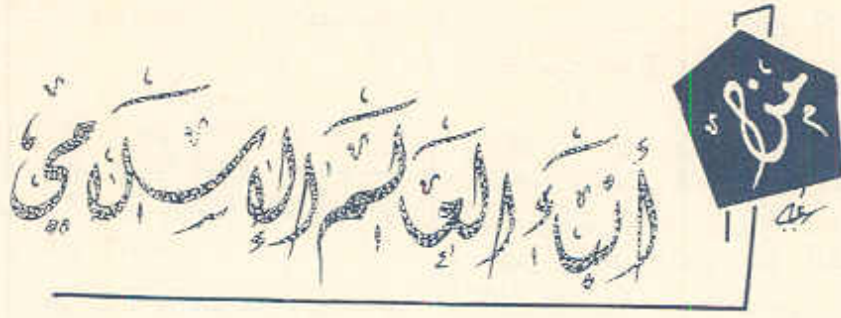 من أنباء العالم الإسلامي